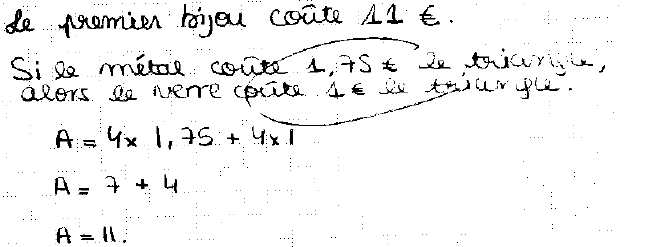 Le premier bijou coûte 11 €.
Si le métal coûte 1,75 € le triangle,
alors le verre coûte 1 € le triangle.
A = 4 × 1,75 + 4 × 1
A = 7 + 4
A = 11.